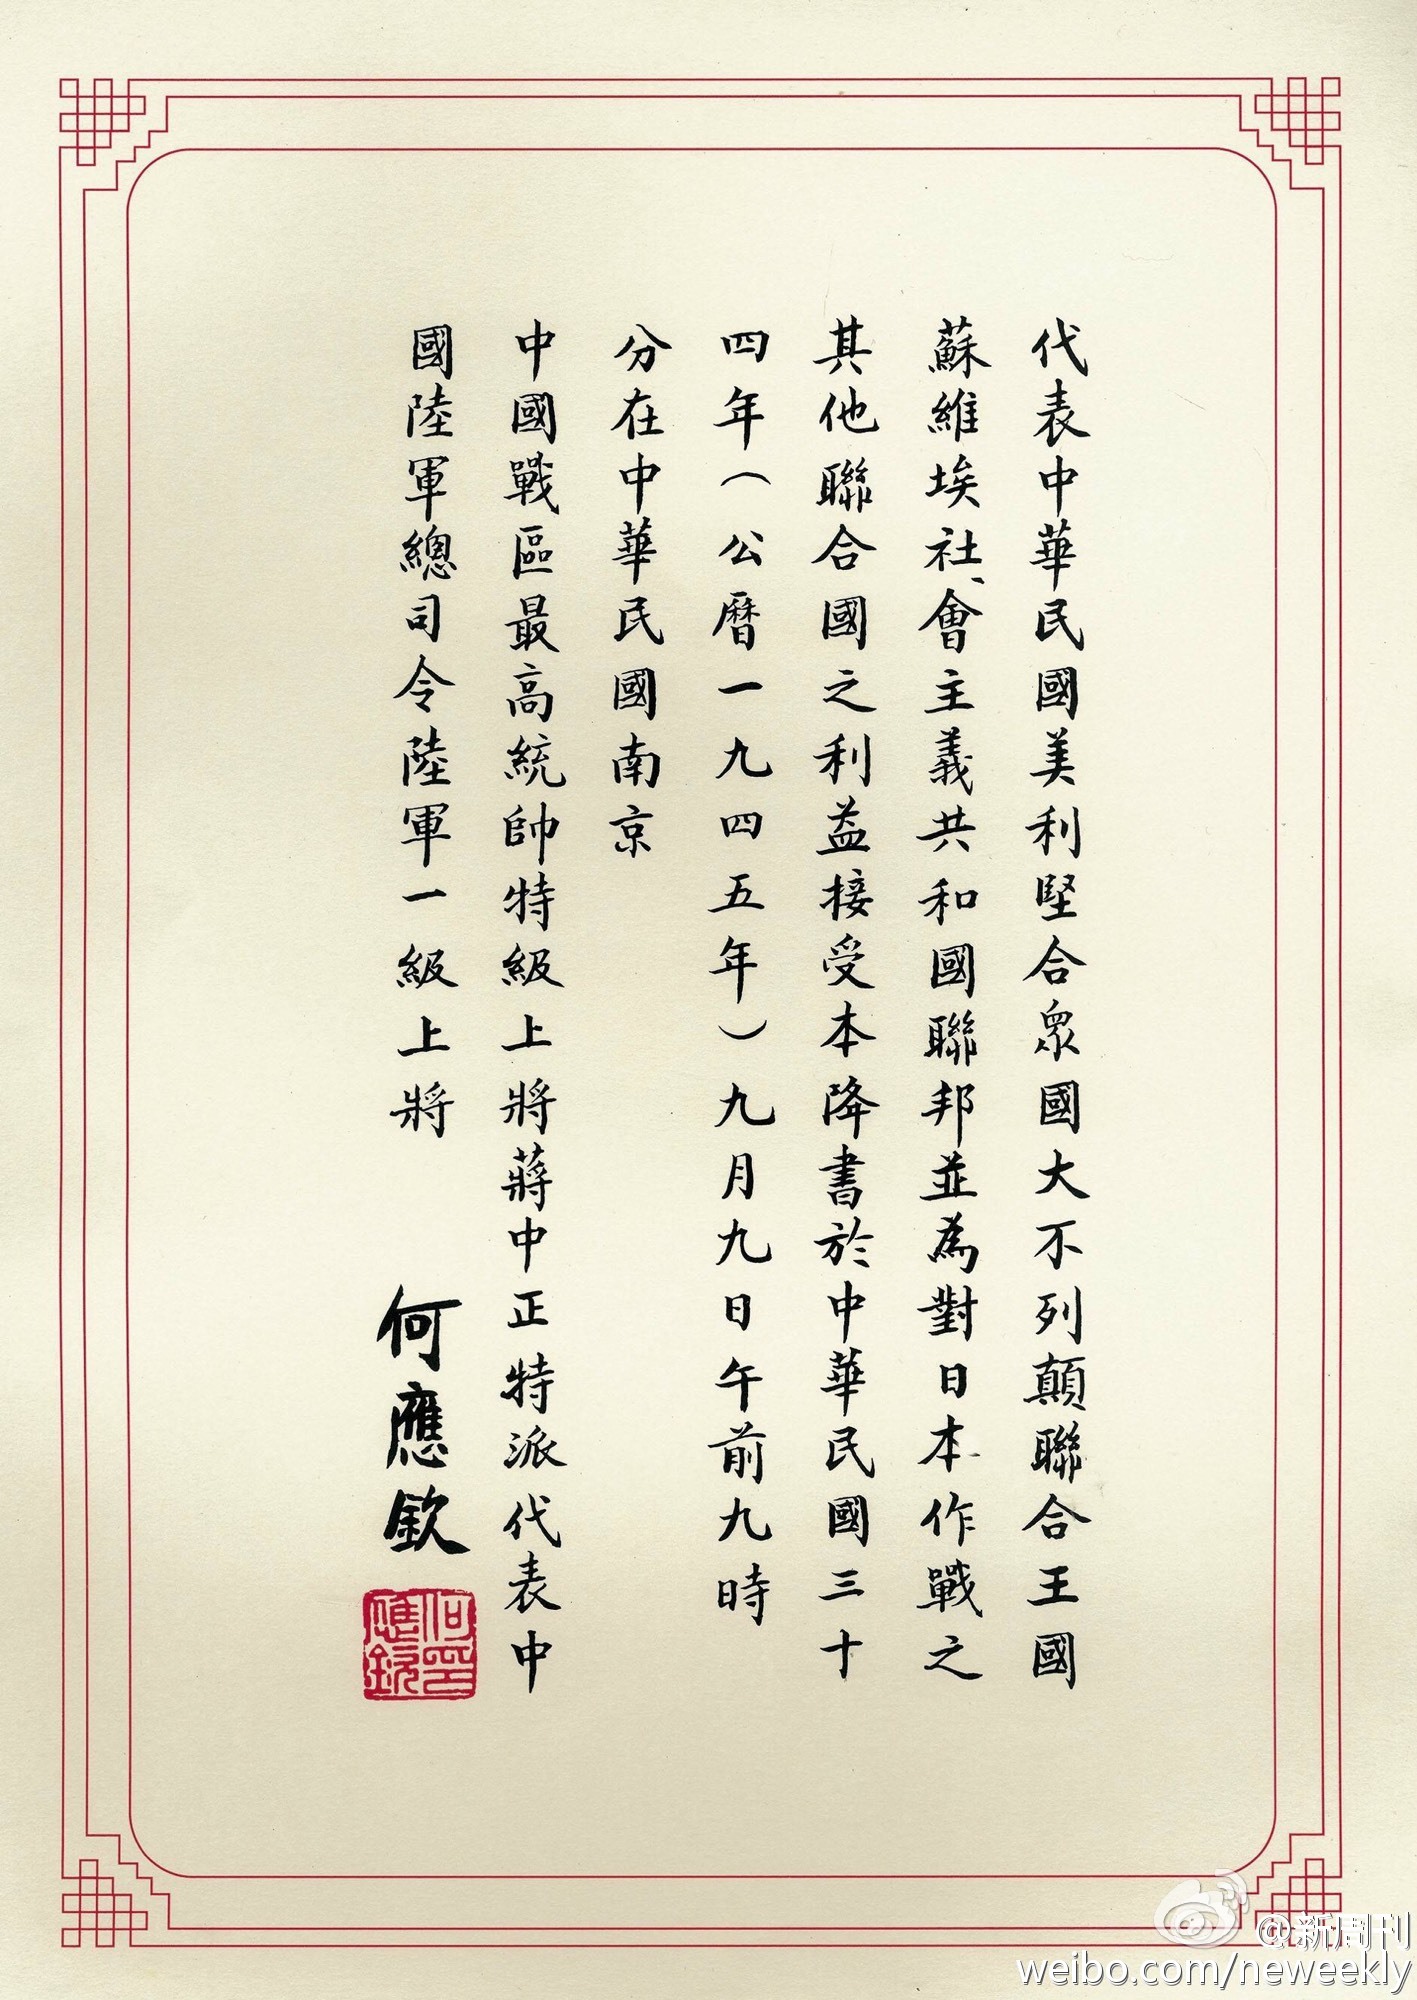 代表中華民國美利堅合眾國大不列顛聯合王國
蘇維埃社會主義共和國聯邦並為對日本作戰之
其他聯合國之利益接受本降書於中華民國三十
四年(公曆一九四五年)九月九日午前九時
分在中華民國南京
中國戰區最高統帥特級上將蔣中正特派代表中
國陸軍總司令陸軍一級上將 何應欽
何應欽印
@新周刊
weibo.com/neweekly